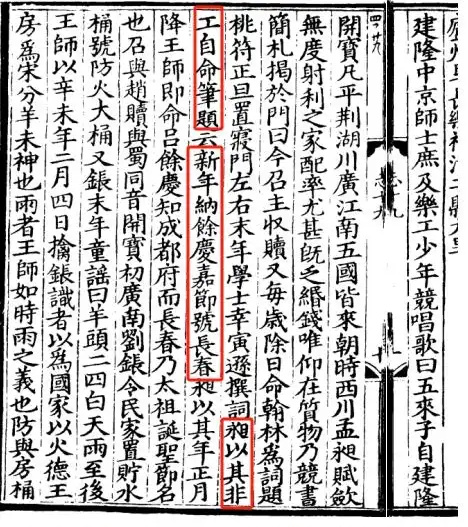 建隆中京師士庶及樂工少年競唱歌曰五來子自建隆
開寶凡平荆湖川廣江南五國皆來朝時西川孟昶賦斂
無度射利之家配率尤甚旣乏緡錢唯仰在質物乃競書
簡札揭於門曰今召主収贖又每歲除日命翰林爲詞題
桃符正旦置寢門左右末年學士幸寅遜撰詞昶以其非
工自命筆題云新年納餘慶嘉節號長春昶以其年正月
降王師即命呂餘慶知成都府而長春乃太祖誕聖節名
也召與趙贖與蜀同音開寶初廣南劉鋹令民家置貯水
桶號防火大桶又鋹末年童謡曰羊頭二四白天雨至後
王師以辛未年二月四日擒鋹識者以爲國家以火德王
房爲宋分羊未神也雨者王師如時雨之義也防與房桶